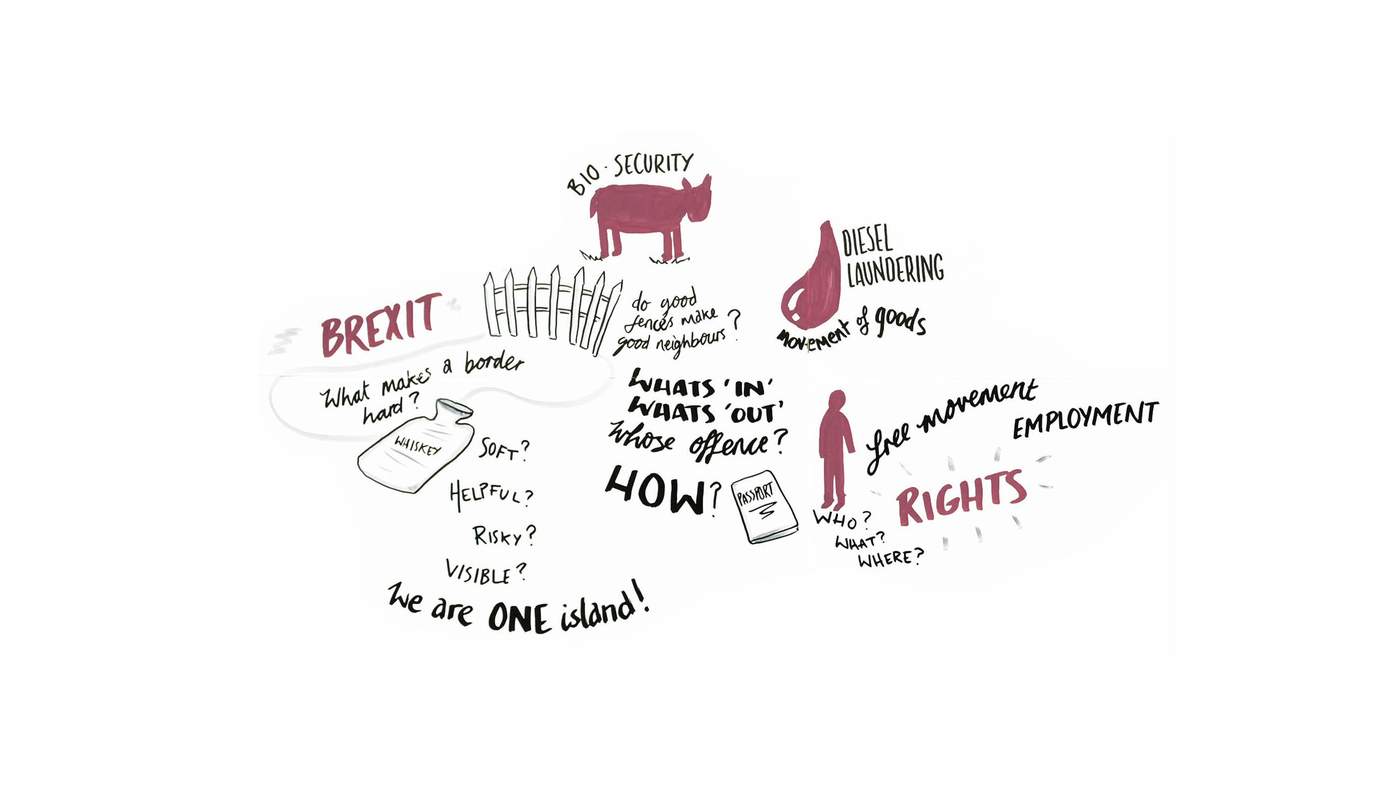 BIO · SECURITY
DIESEL
LAUNDERING
movement of goods
do good
fences make
good neighbours?
BREXIT
What makes a border
hard?
WHISKEY
SOFT?
HELPFUL?
RISKY?
VISIBLE?
We are ONE island!
WHATS 'IN'
WHATS 'OUT'
Whose offence?
HOW?
PASSPORT
free movement
EMPLOYMENT
RIGHTS
WHO?
WHAT?
WHERE?